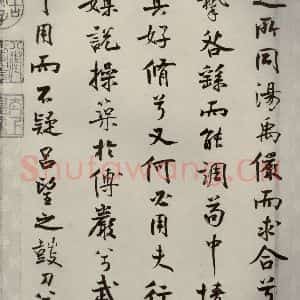 之所同湯禹儼而求合兮
摯咎繇而能調苟中情
其好脩兮又何必用夫行
媒說操築於傅巖兮武
丁用而不疑呂望之鼓刀
Shufawang.cn